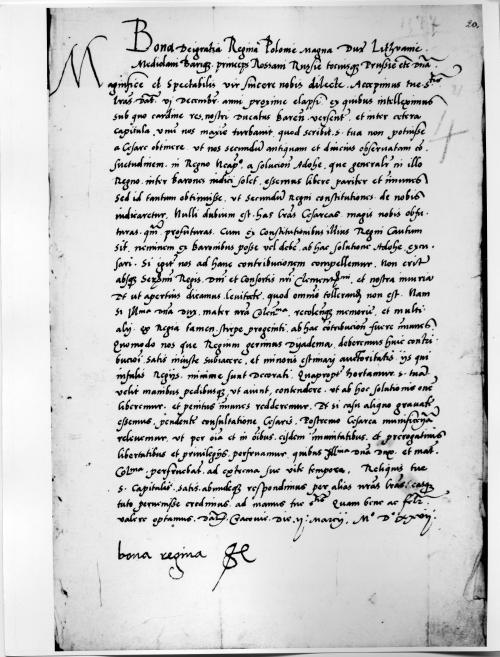 Bona Dei gratia Regina Polonie Magna Dux Lithuanie
Mediolani Bariq. princeps Rossani Russie totiusq. Prussie etc Dna
Magnifice et Spectabilis vir sincere nobis dilecte. Accepimus tue s.
lras dat. vi Decembr. anni proxime elapsi ex quibus intelleximus
sub quo cardine res nostri Ducatus Baren. versent, et inter cetera
capitula, unu nos maxie turbavit, quod scribit s. tua non potuisse
a Cesare obtinere, ut nos secundu antiquam et diucius observatam co
suetudinem in Regno Neap. a solucion Adohe, que generalr in illo
Regno inter barones indici solet, essemus libere pariter et imunes
Sed id tantum obtinuisse, ut secundu Regni constitutiones de nobis
iudicaretur. Nulli dubium est has lras Cesareas magis nobis obfu
turas, qm profuturas. Cum ex Constitutionibus illius Regni Cautum
sit, neminem ex baronibus posse vel debe ab hac solutione Adohe excu
sari. Si igit nos ad hanc contribucionem compellemur. Non erit
absq. Sermi Regis, Dni et Consortis nri Clementmi, et nostra iniuria
Et ut apertius dicamus levitate, quod omnio tollerandu non est. Nam
Si Illma dna Dux, mater nra Colenma, recolende memorie, et multi
alij ex Regia tamen stirpe progeniti, ab hac cotribucion fuere imunes
Quomodo nos que Regium gerimus dyadema, deberemus huic contri
bucioi satis iniuste subiacere, et minoris estimarij authoritatis ijs qui
infulis Regijs minime sunt decorati. Quapropt hortamur s. tua
velit manibus pedibusq. ut aiunt, contendere, ut ab hoc solutionis one
liberemur, et penitus imunes redderemur. Et si casu aliquo gravate
essemus, pendente consultatione Cesaris. Postremo Cesarea munificentia
relevemur, ut per oia et in oibus, eisdem imunitatibus, et prerogativis
libertatibus et privilegijs, perfruamur, quibus Illma Dna Dux, et mat.
Colma. perfruebat, ad extrema sue vite tempora. Reliquis tue
s. Capitulis, satis abundeq. respondimus per alias nras lras, easq.
tuto pervenisse credimus, ad manus tue s. Quam bene ac felr
valere optamus. Dat. Cracovie. Die ij. Marcij. Mo Do XXVij.
bona regina
20.
4